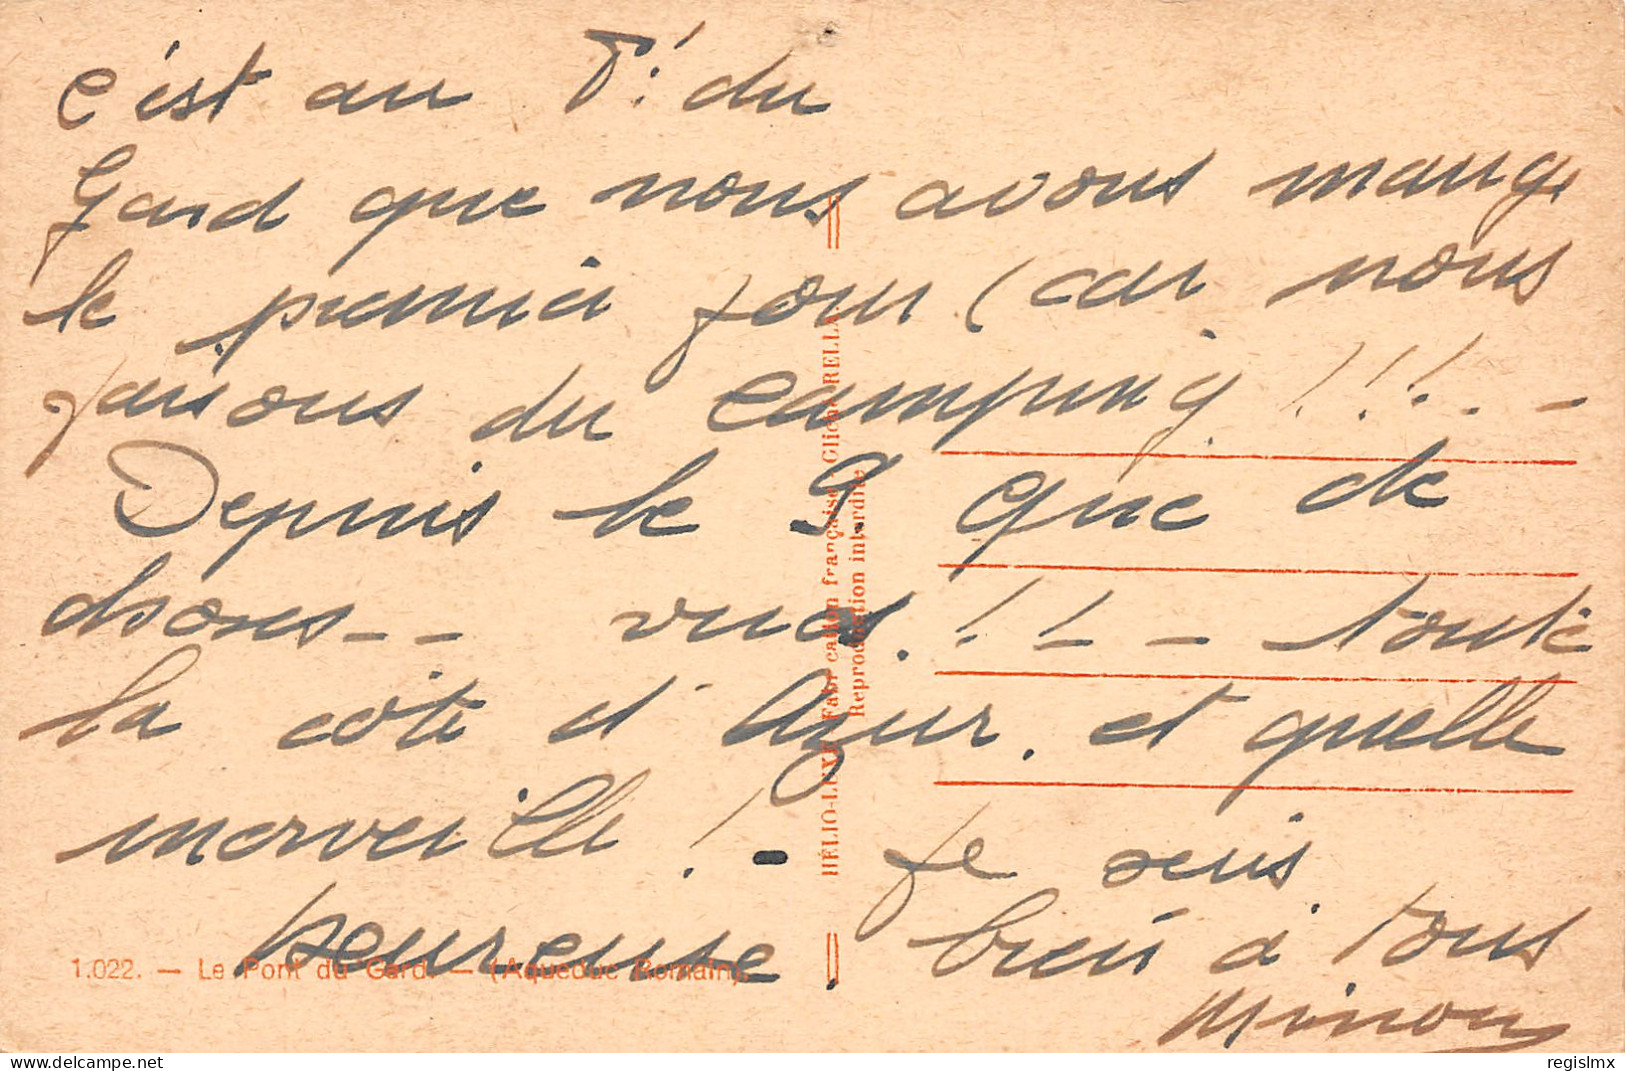 c'est au Pt. du
Gard que nous avons mangé
le premier jour (car nous
faisons du camping!!!. -
Depuis le 9. que de
choses -- vues.!!- - toute
la côte d'Azur. et quelle
merveille! - Je suis
heureuse. bien à tous
Minou
1.022. - Le Pont du Gard. - (Aqueduc Romain).
HÉLIO-LUXE Fabrication française Cliché ARELLA
Reproduction interdite
regislmx